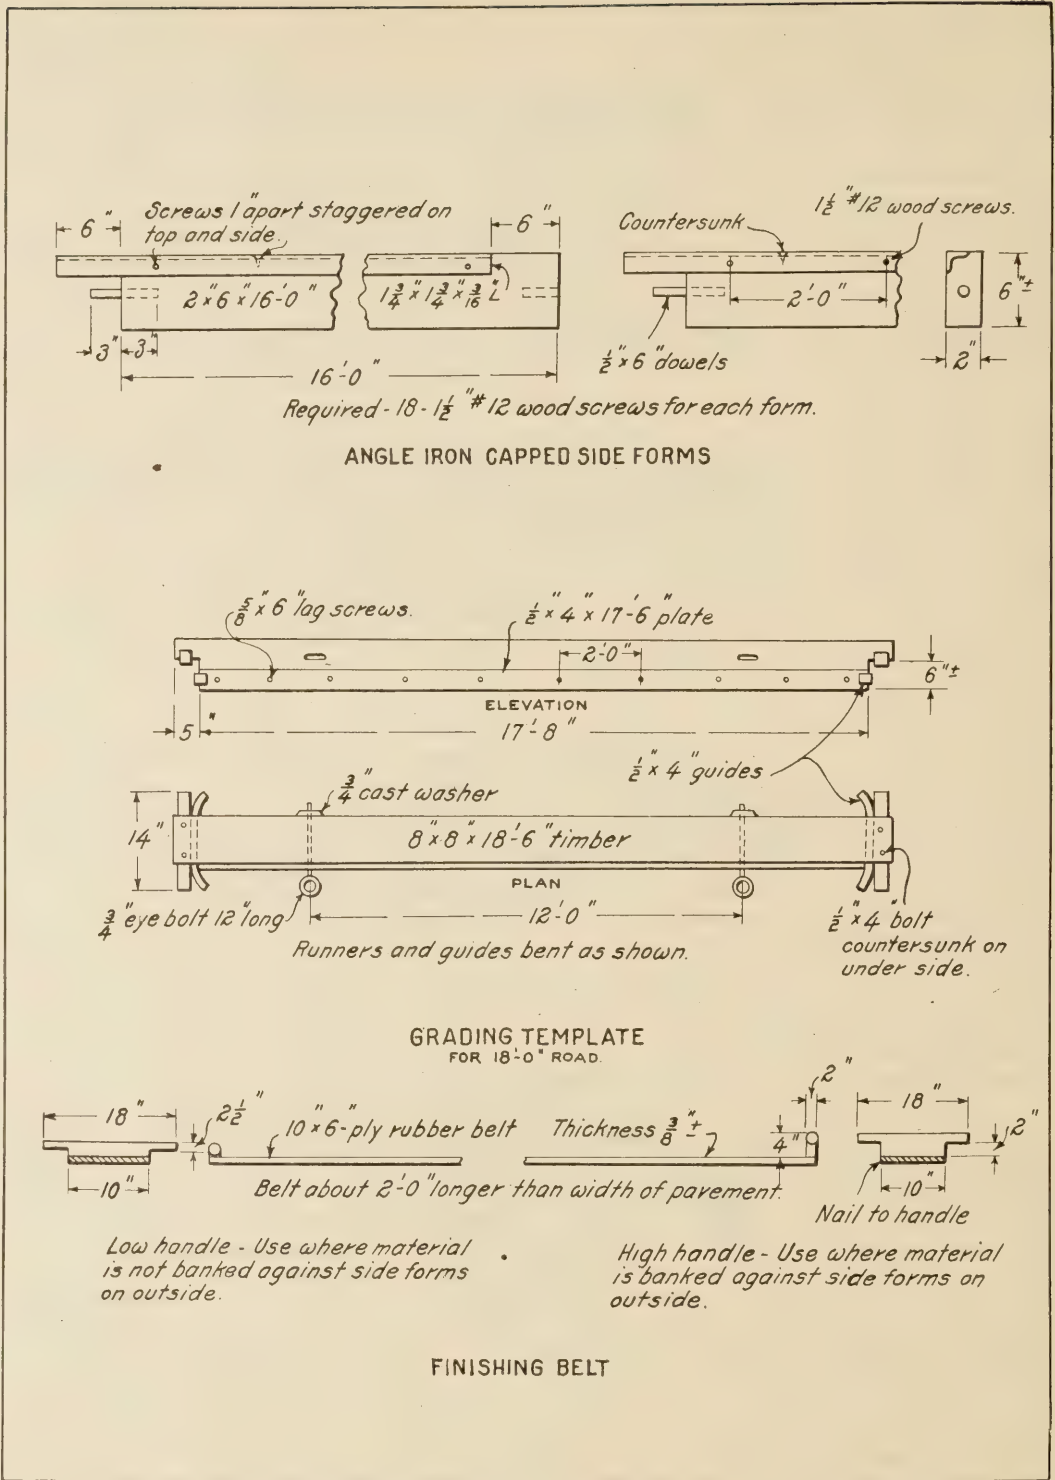 6"
Screws 1" apart staggered on
top and side.
6"
2"x6"x16'-0"
1 3/4"x1 3/4"x3/16"L
3"
3"
16'-0"
Countersunk
1 1/2" #12 wood screws.
2'-0"
6"±
1/2"x6" dowels
2"
Required - 18 - 1 1/2" #12 wood screws for each form.
ANGLE IRON CAPPED SIDE FORMS
5/8"x6" lag screws.
1/2"x4"x17'-6" plate
2'-0"
6"±
ELEVATION
5"
17'-8"
1/2"x4" guides
3/4" cast washer
14"
8"x8"x18'-6" timber
PLAN
3/4" eye bolt 12" long
12'-0"
1/2"x4" bolt
countersunk on
under side.
Runners and guides bent as shown.
GRADING TEMPLATE
FOR 18'-0" ROAD.
18"
2 1/2"
10"x6-ply rubber belt
Thickness 3/8"±
2"
4"
18"
2"
10"
Belt about 2'-0" longer than width of pavement.
10"
Nail to handle
Low handle - Use where material
is not banked against side forms
on outside.
High handle - Use where material
is banked against side forms on
outside.
FINISHING BELT